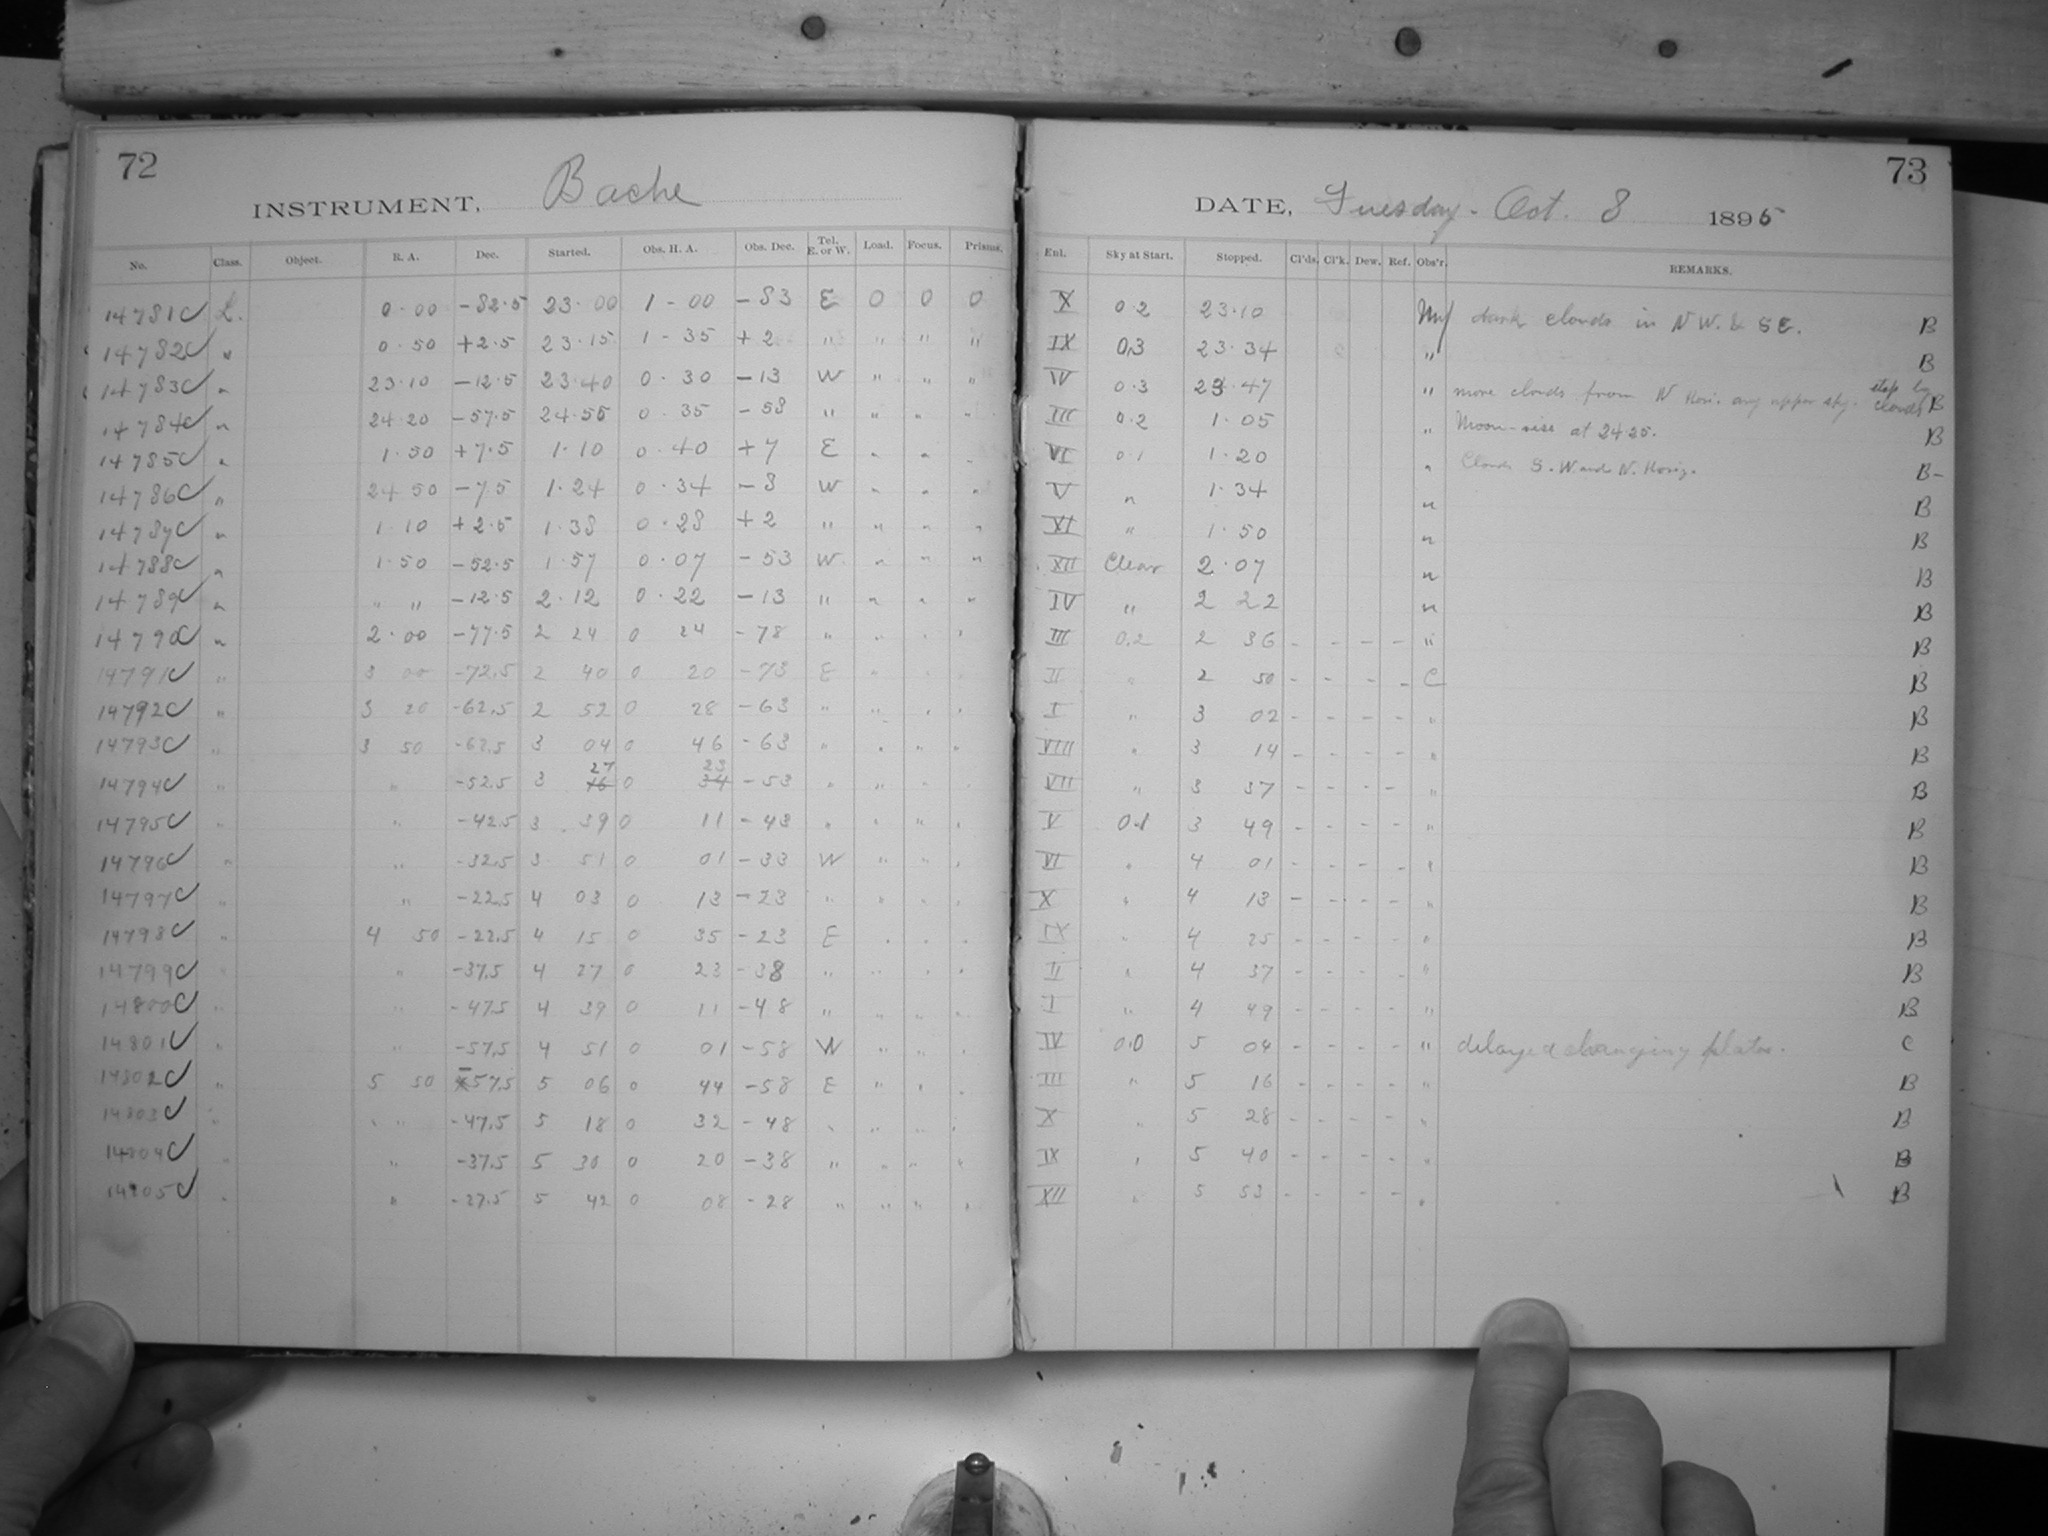 72
INSTRUMENT, Bache
No. Class. Object. R. A. Dec. Started. Obs. H. A. Obs. Dec. Tel. E. or W. Load. Focus. Prisms.
14781C L. 0.00 -82.5 23.00 1-00 -83 E 0 0 0
14782C " 0.50 +2.5 23.15 1-35 +2 " " " "
14783C " 23.10 -12.5 23.40 0.30 -13 W " " "
14784C " 24.20 -57.5 24.55 0.35 -58 " " " "
14785C " 1.50 +7.5 1.10 0.40 +7 E " " "
14786C " 24 50 -7.5 1.24 0.34 -8 W " " "
14787C " 1 10 +2.5 1.38 0.28 +2 " " " "
14788C " 1.50 -52.5 1.57 0.07 -53 W. " " "
14789C " " " -12.5 2.12 0.22 -13 " " " "
14790C " 2.00 -77.5 2 24 0 24 -78 " " " "
14791C " 3 00 -72.5 2 40 0 20 -73 E " " "
14792C " 3 20 -62.5 2 52 0 28 -63 " " " "
14793C " 3 50 -62.5 3 04 0 46 -63 " " " "
14794C " " -52.5 3 16 27 0 34 23 -53 " " " "
14795C " " -42.5 3 39 0 11 -43 " " " "
14796C " " -32.5 3 51 0 01 -33 W " " "
14797C " " -22.5 4 03 0 13 -23 " " " "
14798C " 4 50 -22.5 4 15 0 35 -23 E " " "
14799C " " -37.5 4 27 0 23 -38 " " " "
14800C " " -47.5 4 39 0 11 -48 " " " "
14801C " " -57.5 4 51 0 01 -58 W " " "
14802C " 5 50 -57.5 5 06 0 44 -58 E " " "
14803C " " -47.5 5 18 0 32 -48 " " " "
14804C " " -37.5 5 30 0 20 -38 " " " "
14805C " " -27.5 5 42 0 08 -28 " " " "
73
DATE, Tuesday - Oct. 8 1895
Enl. Sky at Start. Stopped. Cl'ds. Cl'k. Dew. Ref. Obs'r. REMARKS.
X 0.2 23.10 dark clouds in N W. & S E. B
IX 0.3 23.34 " B
IV 0.3 23.47 " more clouds from N Hori. any upper sky. stop by clouds B
III 0.2 1.05 " Moon-rise at 24.25. B
VI 0.1 1.20 " Clouds S. W and N. Horiz. B-
V " 1.34 " B
XI " 1.50 " B
XII Clear 2.07 " B
IV " 2 22 " B
III 0.2 2 36 - - - - " B
II " 2 50 - - - - C B
I " 3 02 - - - - " B
VIII " 3 14 - - - - " B
VII " 3 37 - - - - " B
V 0.1 3 49 - - - - " B
VI " 4 01 - - - - " B
X " 4 13 - - - - " B
IX " 4 25 - - - - " B
II " 4 37 - - - - " B
I " 4 49 - - - - " B
IV 0.0 5 04 - - - - " delayed changing plates. C
III " 5 16 - - - - " B
X " 5 28 - - - - " B
IX " 5 40 - - - - " B
XII " 5 53 - - - - " B